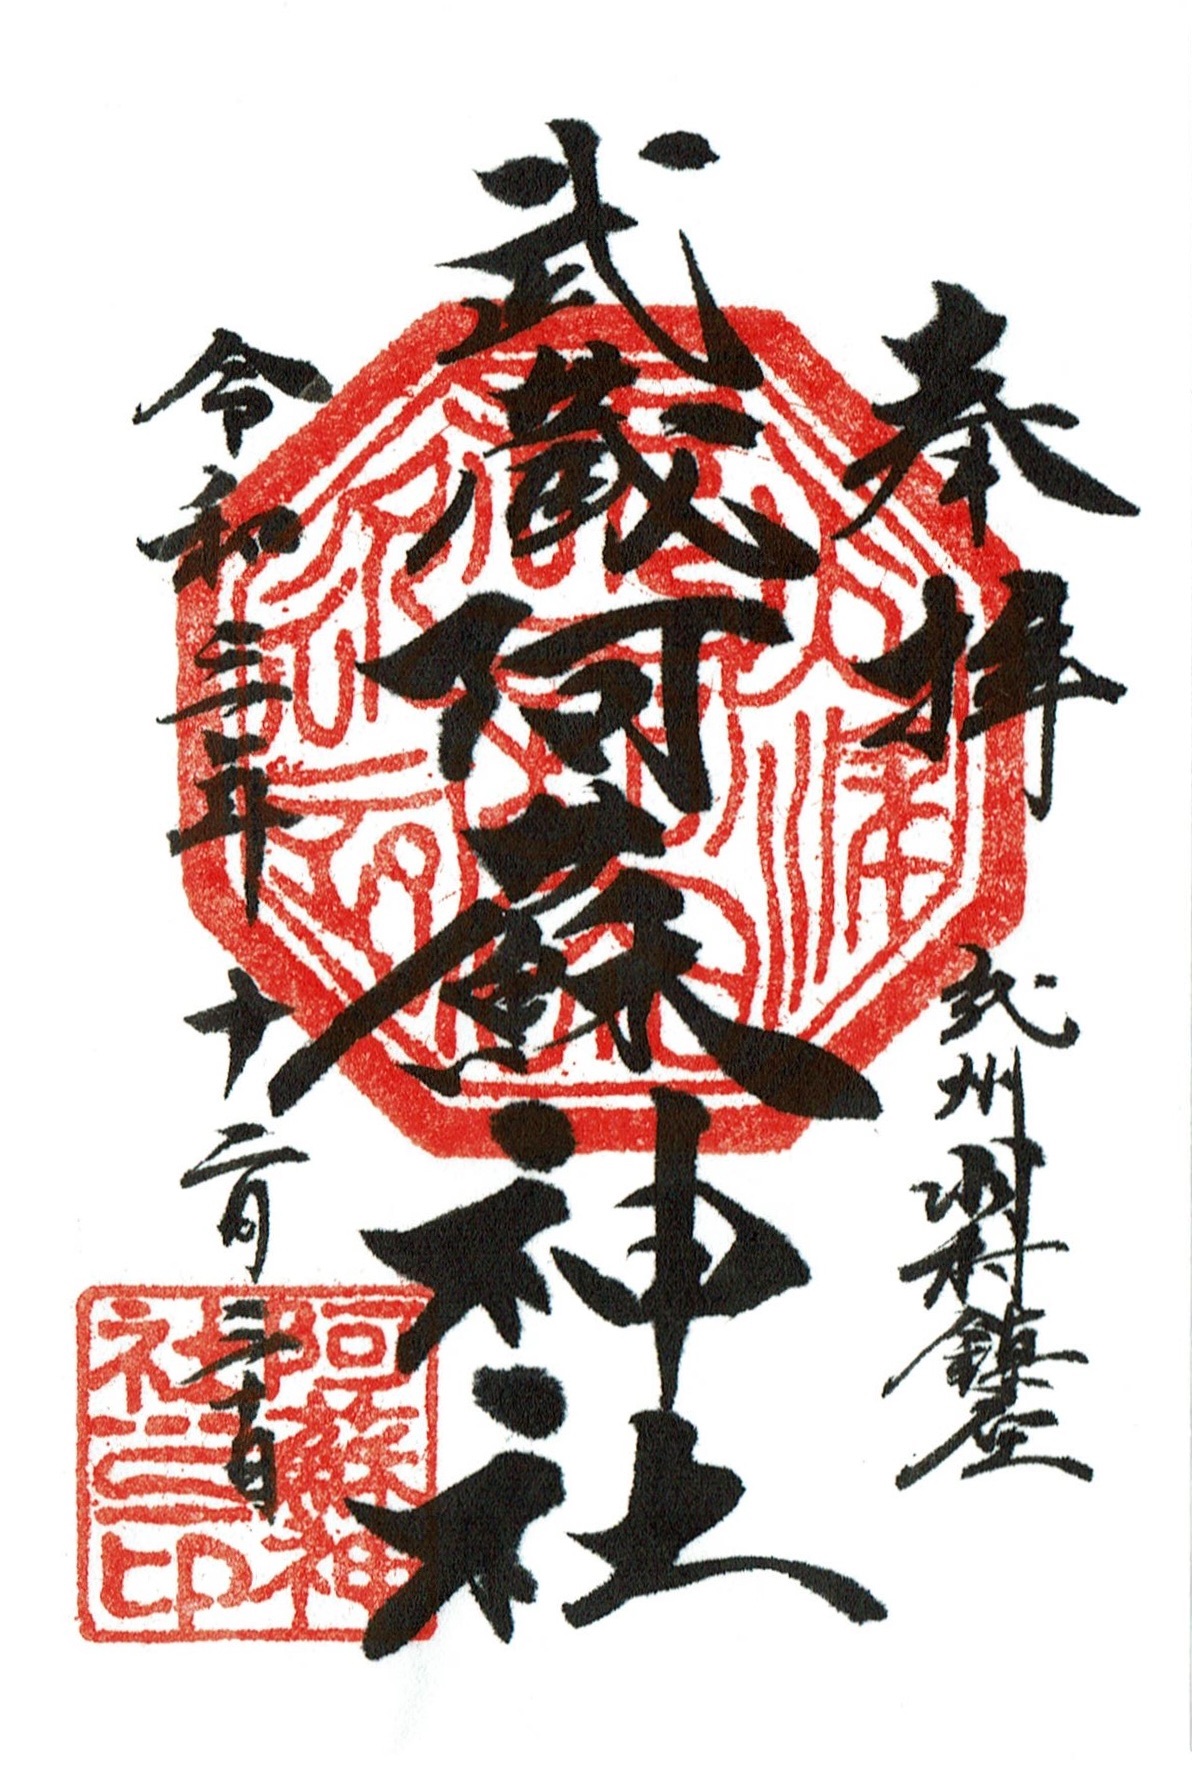 奉拝
武州羽村鎮座
武蔵阿蘇神社
令和三年十二月三十日
阿蘇神
社之印